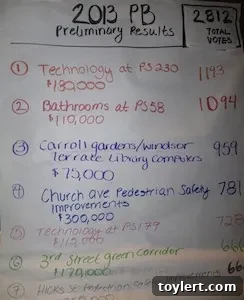 2013 PB
Preliminary Results
2812
TOTAL
VOTES
1 Technology at PS 230 1193
$180,000
2 Bathrooms at PS 58 1094
$110,000
3 Carroll gardens/windsor 959
Terrace Library Computers
$75,000
4 Church ave Pedestrian Safety 781
Improvements
$300,000
5 Technology at PS 179 728
$115,000
6 3rd Street green Corridor
$170,000
7 Hicks St Pedestrian Safety Improvements
toylert.com